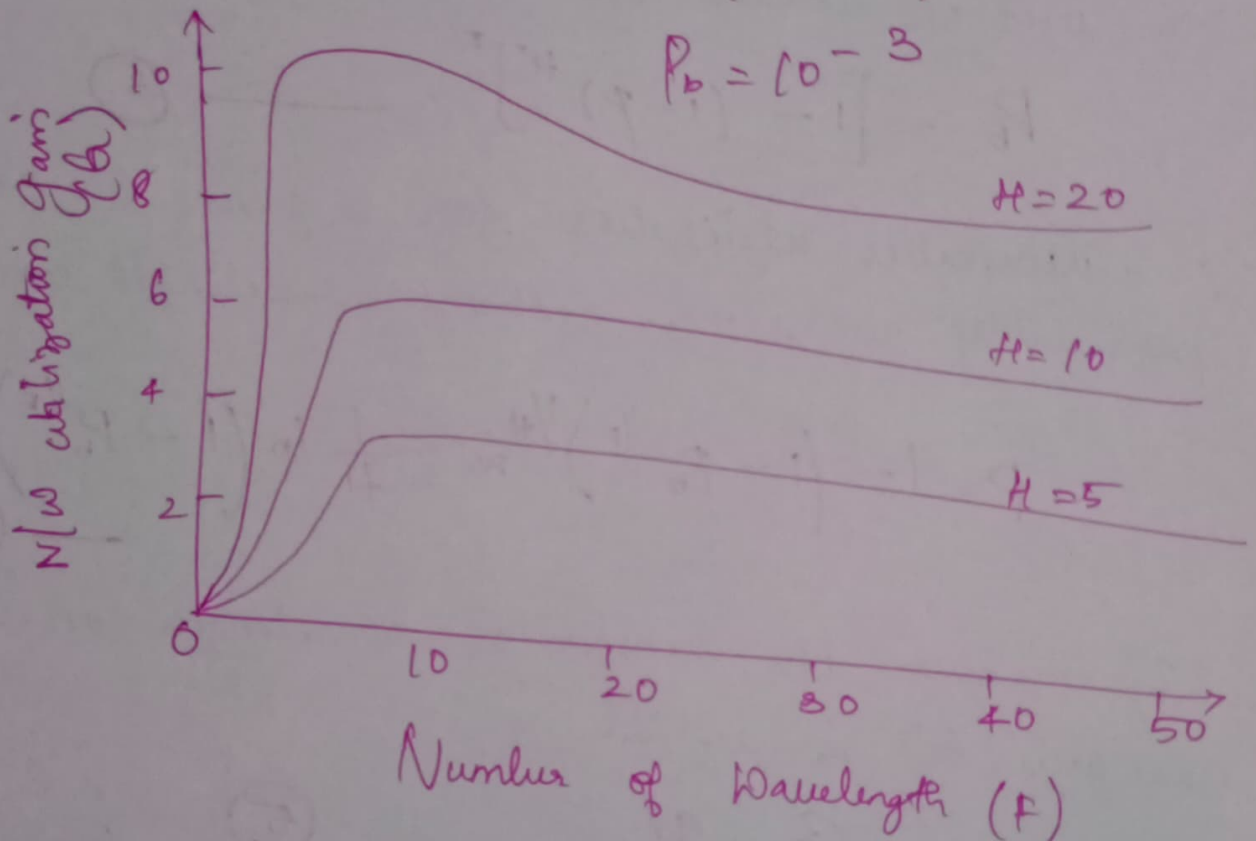 P_b = 10^-3
N/w utilization gain
G(a)
10
8
6
4
2
0
H=20
H=10
H=5
10
20
30
40
50
Number of Wavelength (F)